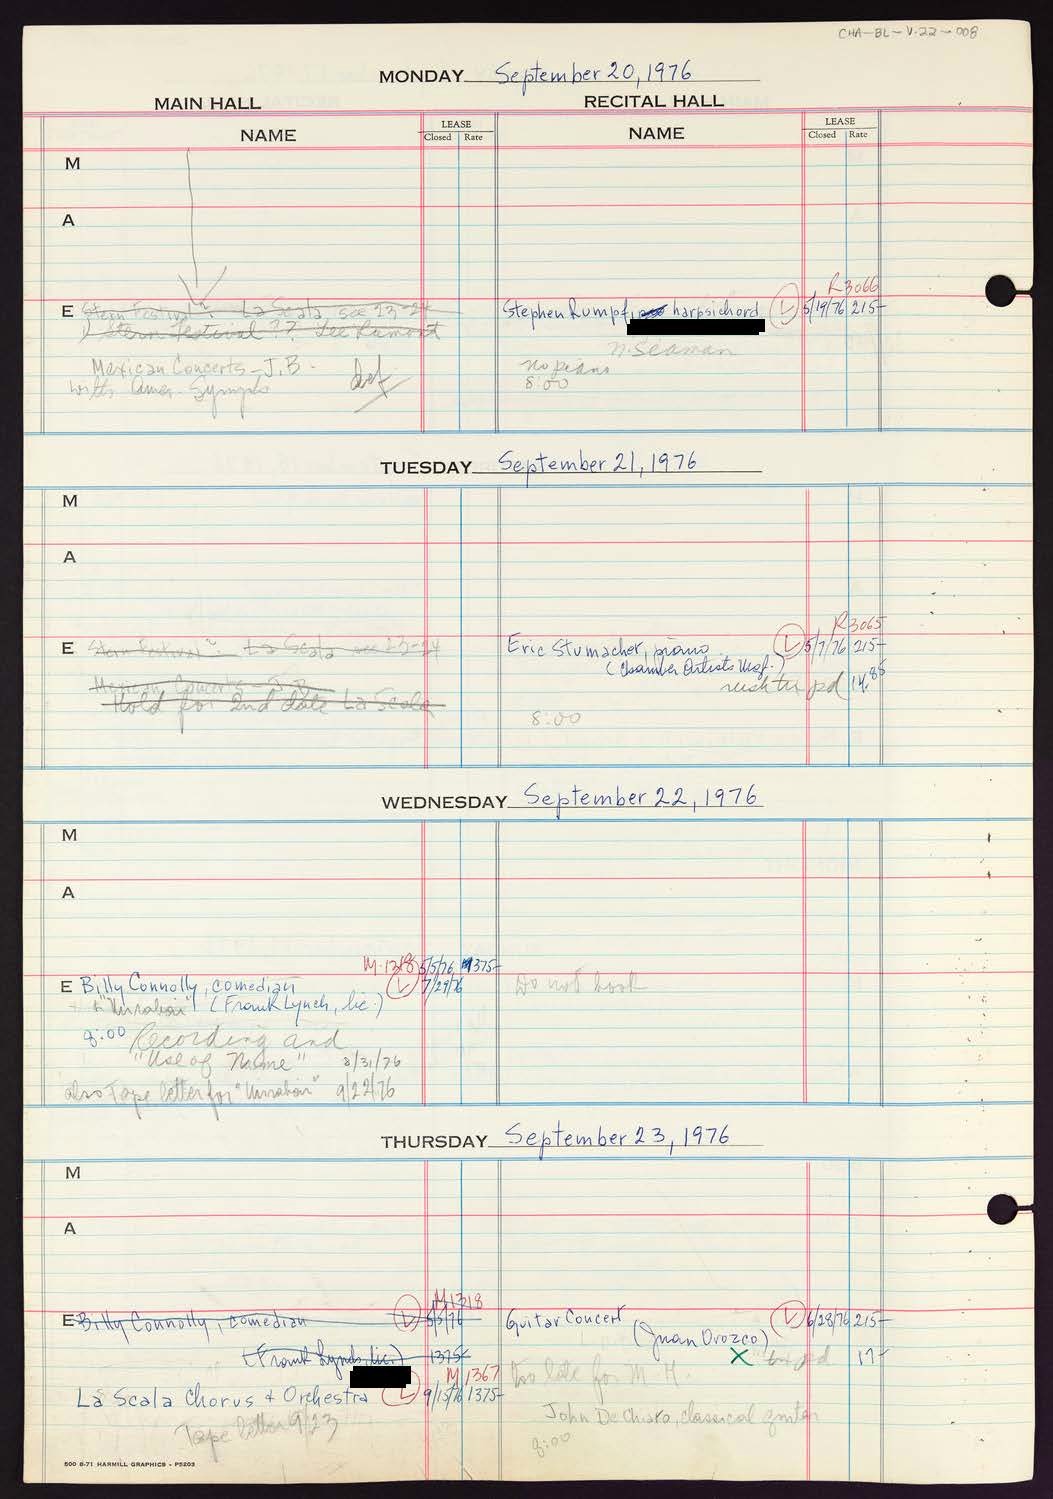 CHA-BL-V.22-008
MONDAY September 20, 1976
MAIN HALL RECITAL HALL
NAME LEASE Closed Rate NAME LEASE Closed Rate
M
A
R3066
E Stern Festival La Scala see 23-24 Stephen Rumpf, harpsichord L 5/19/76 215-
Stern Festival ?? See Ramont
N. Seaman
Mexican Concerts - J.B. no piano
with Amer. Sympho 8:00
TUESDAY September 21, 1976
M
A
R3065
E Stern Festival La Scala see 23-24 Eric Stumacher, piano L 5/7/76 215-
(Chamber Artists Mgt.)
Mexican Concerts - J.B. pd 14.85
Hold for 2nd date La Scala
8:00
WEDNESDAY September 22, 1976
M
A
M-1318 5/5/76 1375-
E Billy Connolly, comedian L 7/29/76 Do not book
(Frank Lynch, lic.)
8:00 Recording and
"Use of Name" 8/31/76
also Tape letter for 9/22/76
THURSDAY September 23, 1976
M
A
M1318
E Billy Connolly, comedian L 5/5/76 Guitar Concert L 6/28/76 215-
(Frank Lynch, lic.) 1375- (Juan Orozco)
X pd 17-
M1367 Too late for M.H.
La Scala Chorus & Orchestra L 9/15/76 1375-
Tape letter 9/23 John De Chiaro, classical guitar
8:00
500 8-71 HARMILL GRAPHICS - P5203